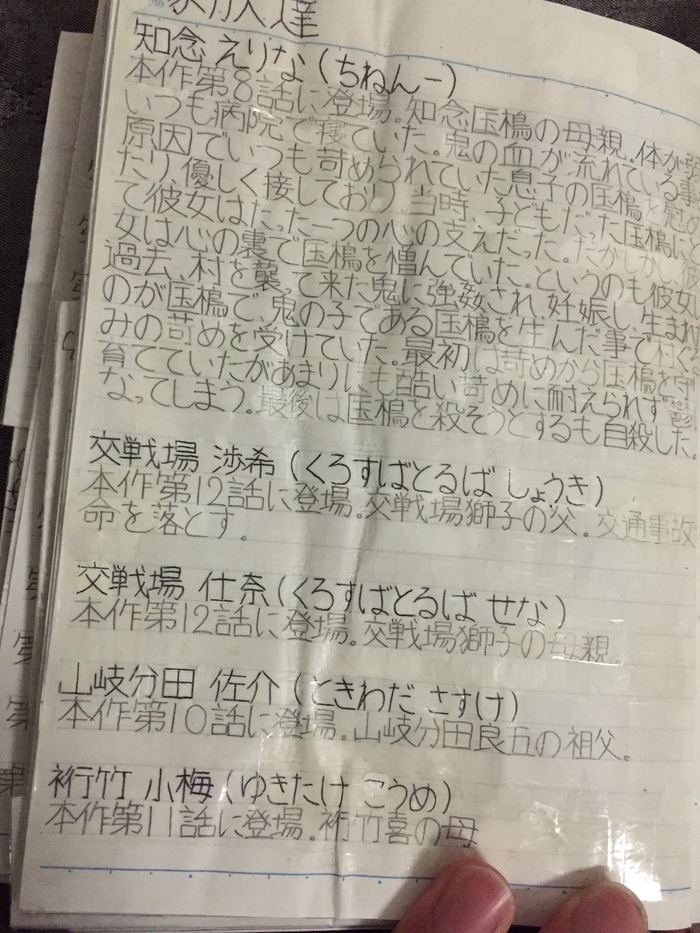 族達
知念 えりな(ちねんー)
本作第8話に登場。知念国槝の母親。体が
いつも病院で寝ていた。鬼の血が流れている事
原因でいつも苛められていた息子の国槝を慰め
たり、優しく接しており、当時、子どもだった国槝に
て彼女はたった一つの心の支えだった。だがしかし、
女は心の裏で国槝を憎んでいた。というのも彼女
過去、村を襲って来た鬼に強姦され、妊娠し、生まれ
のが国槝で、鬼の子である国槝を生んだ事で村ぐる
みの苛めを受けていた。最初は苛めから国槝を守
育てていたがあまりにも酷い苛めに耐えられず鬱
なってしまう。最後は国槝を殺そうとするも自殺した。
交戦場 渉希(くろすばとるば しょうき)
本作第12話に登場。交戦場獅子の父。交通事故
命を落とす。
交戦場 仕奈(くろすばとるば せな)
本作第12話に登場。交戦場獅子の母親。
山岐分田 佐介(ときわだ さすけ)
本作第10話に登場。山岐分田良五の祖父。
裄竹 小梅(ゆきたけ こうめ)
本作第11話に登場。裄竹喜の母